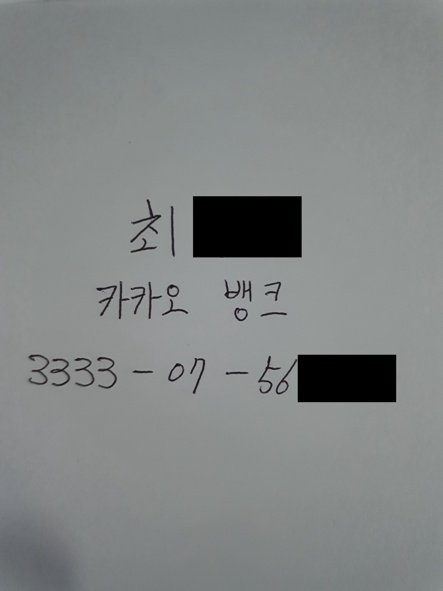 최
카카오 뱅크
3333-07-56